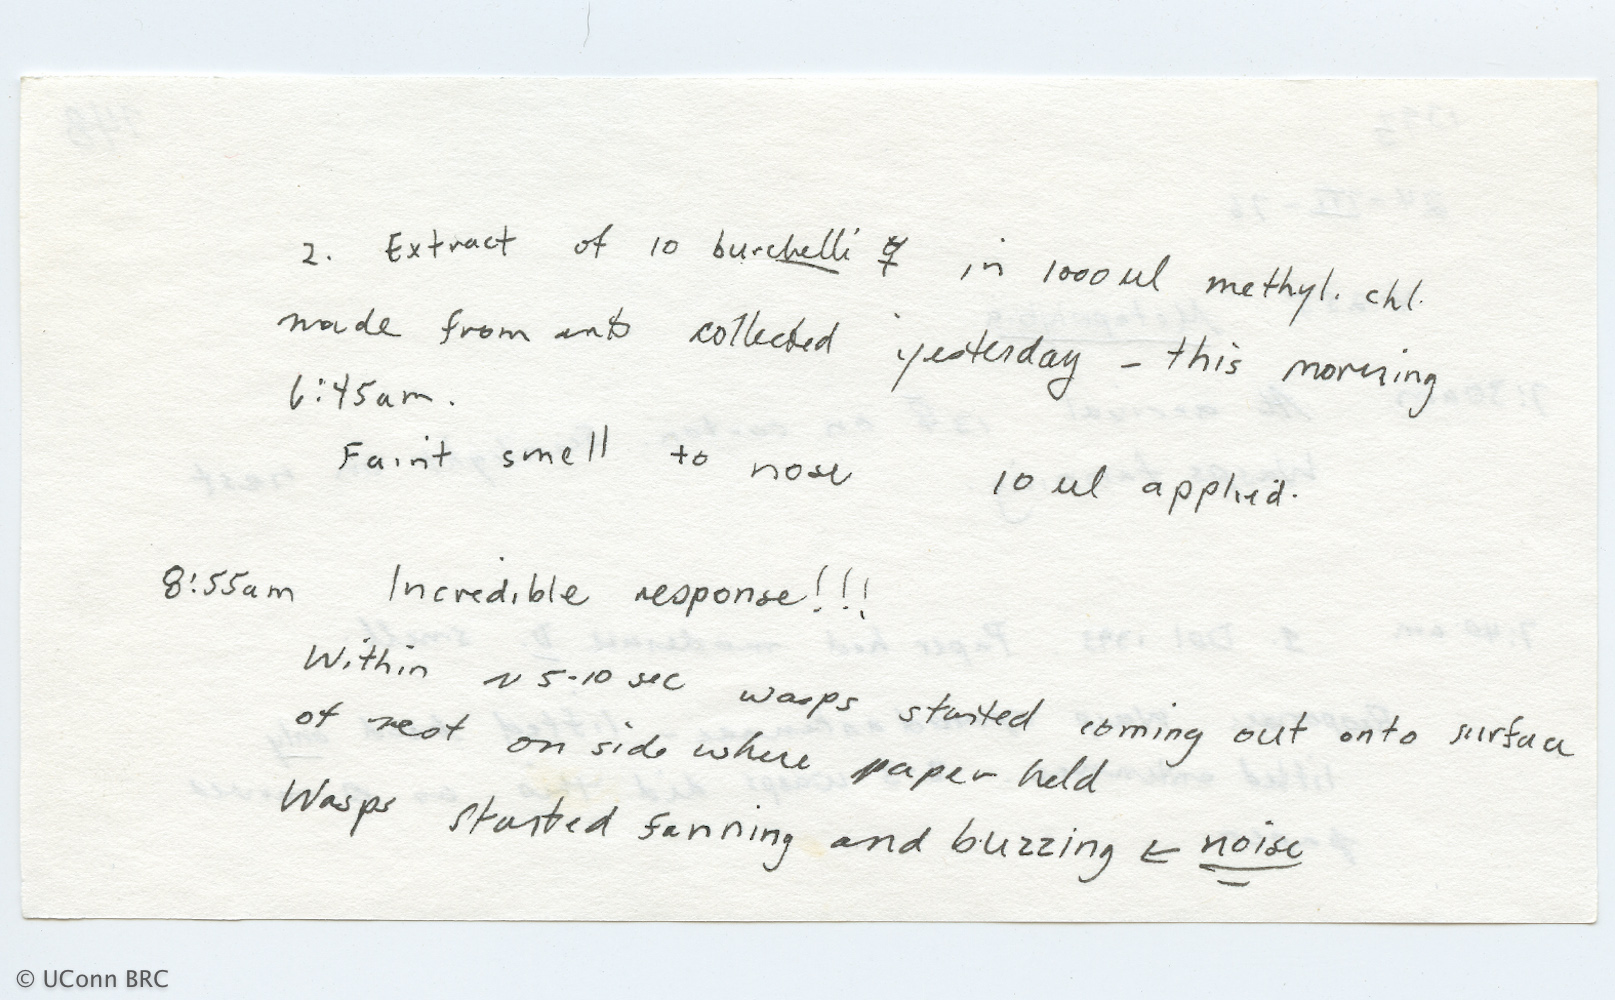 2. Extract of 10 burchelli ☿ in 1000 ul methyl. chl.
made from ants collected yesterday - this morning
6:45am.
Faint smell to nose 10 ul applied.
8:55am Incredible response!!!
Within ~ 5-10 sec wasps started coming out onto surface
of nest on side where paper held
Wasps started fanning and buzzing ← noise
© UConn BRC